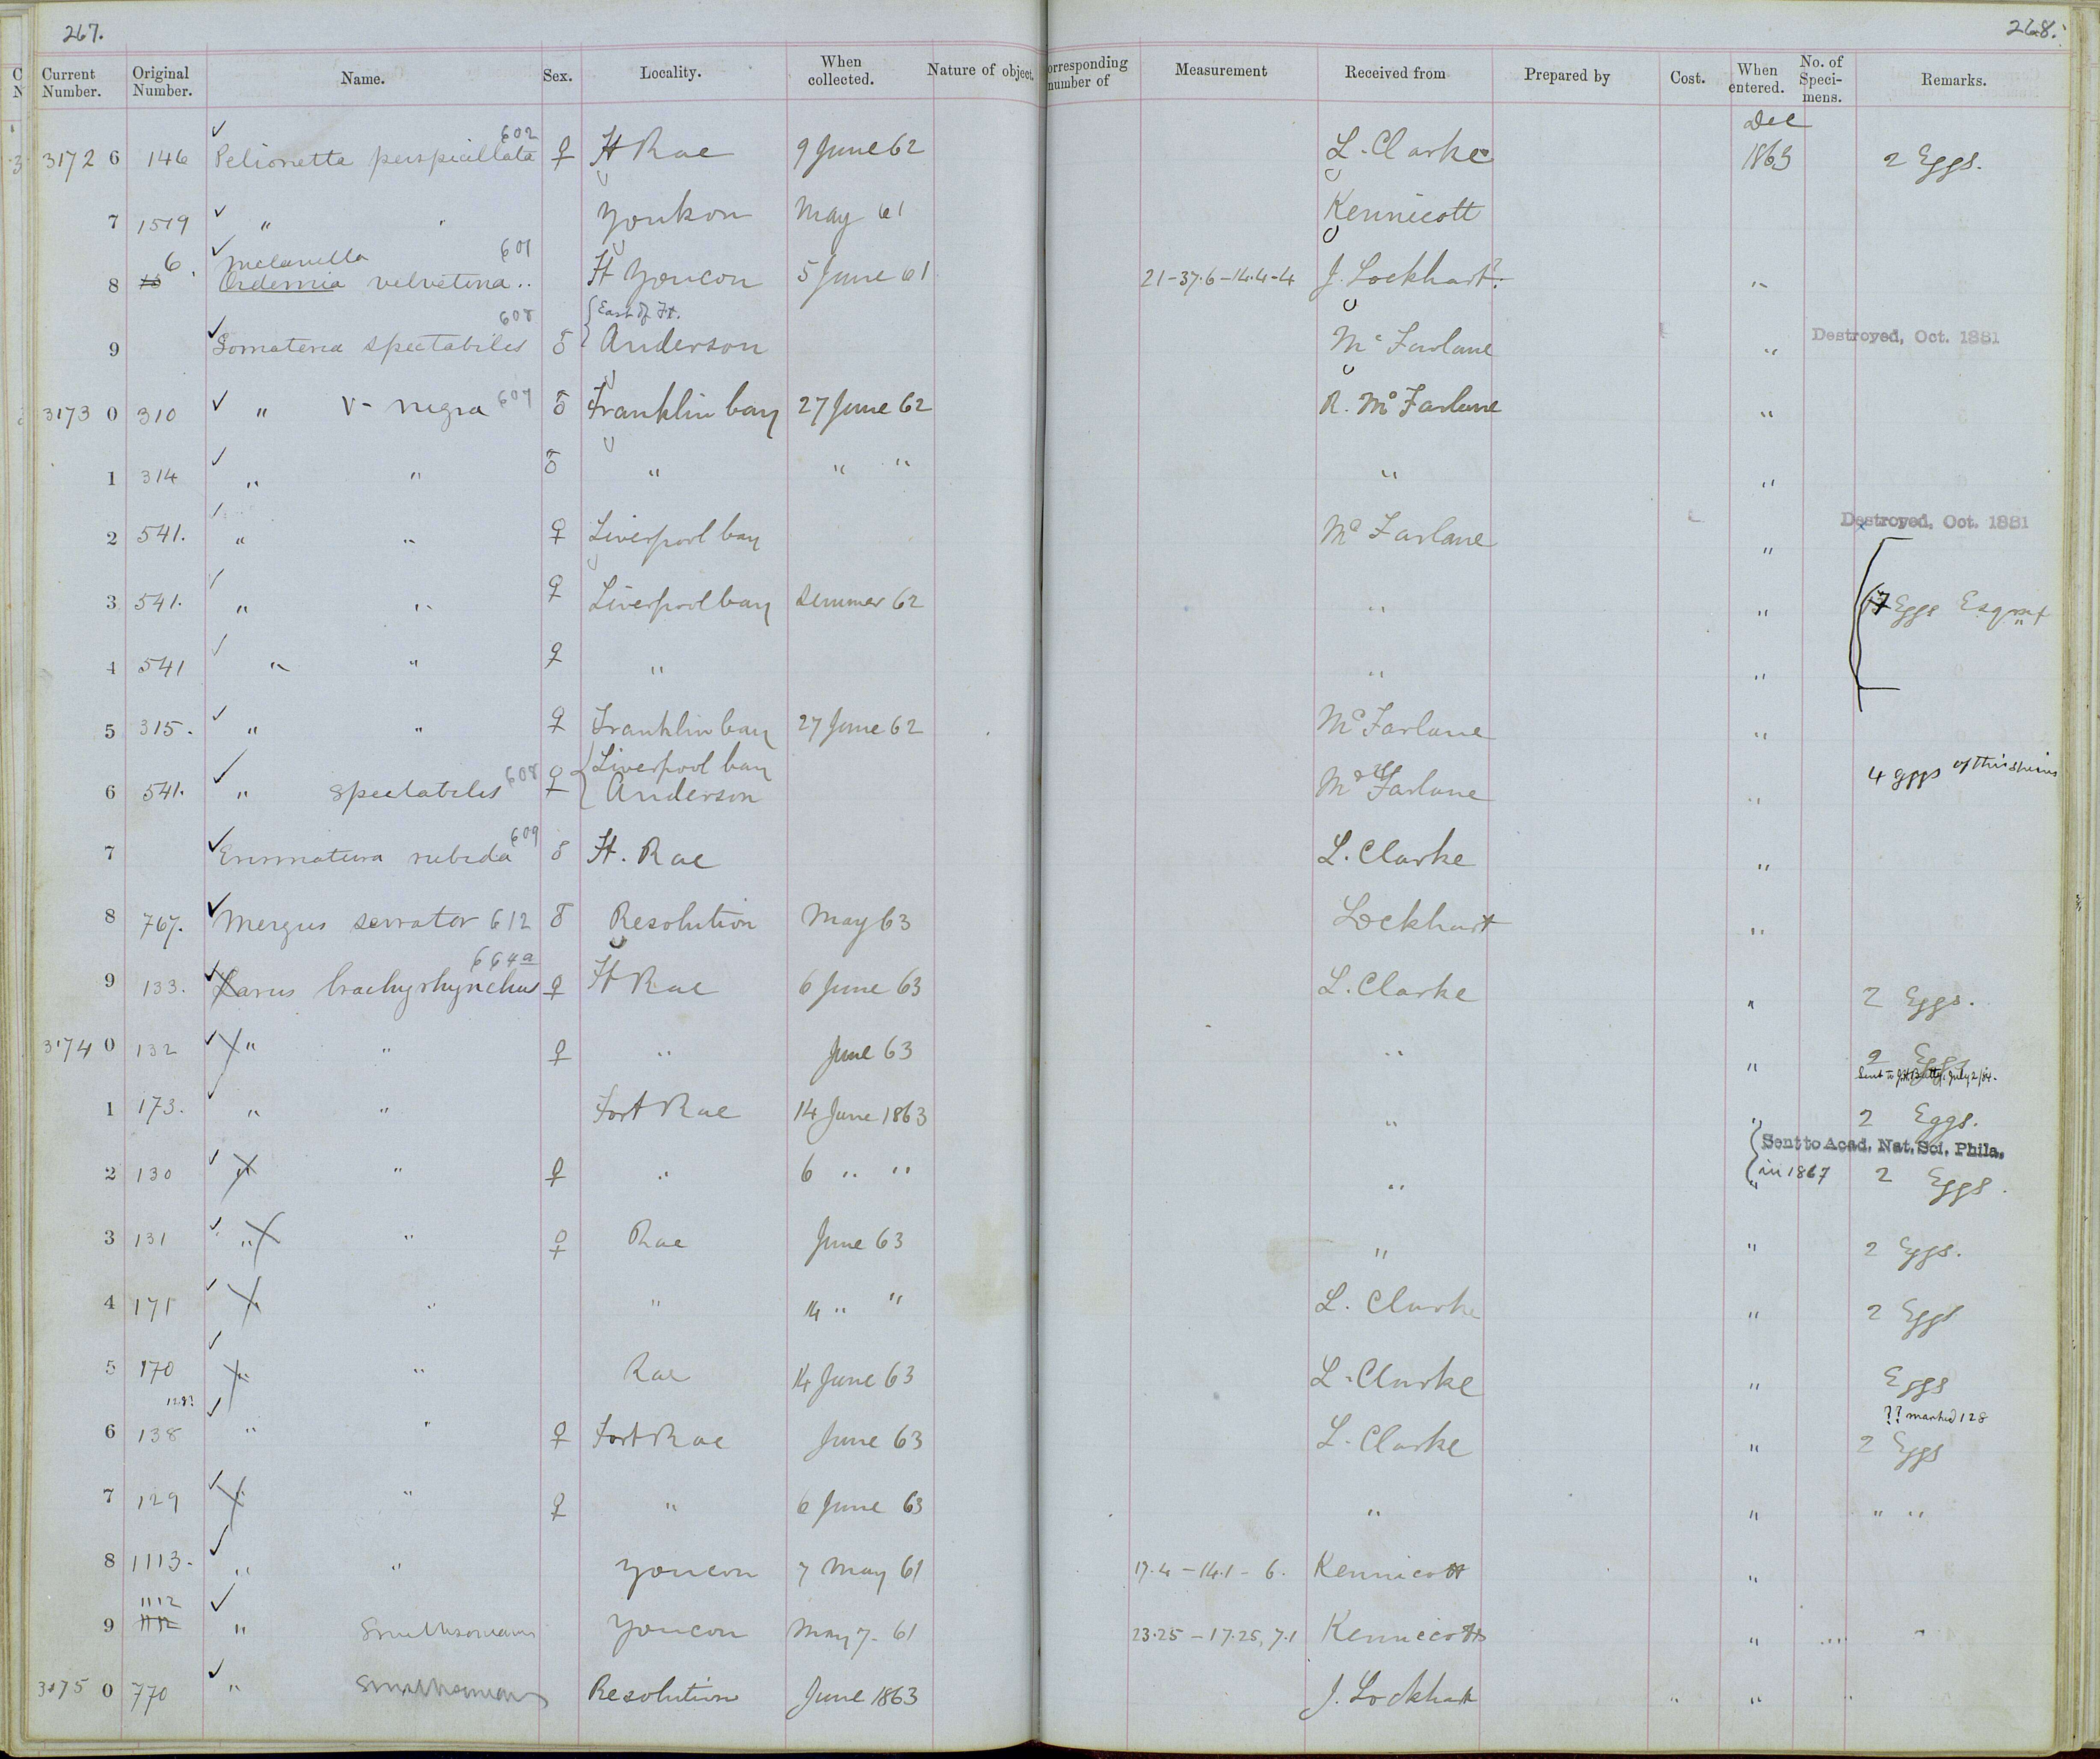 267. 268.
Current Number. Original Number. Name. Sex. Locality. When collected. Nature of object. orresponding number of Measurement Received from Prepared by Cost. When entered. No. of Speci-mens. Remarks.
602 Dec
3172 6 146 Pelionetta perspicillata ♀ Ft Rae 9 June 62 L. Clarke 1863 2 Eggs.
7 1519 " " Youkon May 61 Kennicott
6 Melanetta 601
8 Oedemia velvetina .. Ft Youcon 5 June 61 21-37.6-14.4-4 J. Lockhart? "
608 East of Ft.
9 Somateria spectabiles ♂ Anderson Mc Farlane " Destroyed, Oct. 1881
3173 0 310 " V-nigra 607 ♂ Franklin bay 27 June 62 R. Mc Farlane "
1 314 " " ♂ " " " " "
2 541. " " ♀ Liverpool bay Mc Farlane " Destroyed, Oct. 1881
3 541. " " ♀ Liverpool bay summer 62 " " 17 Eggs Esqmx
4 541 " " ♀ " " "
5 315. " " ♀ Franklin bay 27 June 62 Mc Farlane "
6 541. " spectabiles 608 ♀ Liverpool bay Anderson Mc Farlane " 4 eggs of this species
7 Erismatura rubida 609 ♂ Ft. Rae L. Clarke "
8 767. Mergus serrator 612 ♂ Resolution May 63 Lockhart "
664a
9 133. Larus brachyrhynchus ♀ Ft Rae 6 June 63 L. Clarke " 2 Eggs.
3174 0 132 " " ♀ " June 63 " " 2 Eggs
Sent to July 2/84.
1 173. " " Fort Rae 14 June 1863 " " 2 Eggs.
Sent to Acad. Nat. Sci. Phila.
2 130 " " ♀ " 6 " " " in 1867 " 2 Eggs.
3 131 " " ♀ Rae June 63 " " 2 Eggs.
4 171 " " " 14 " " L. Clarke " 2 Eggs
5 170 " " Rae 14 June 63 L. Clarke " Eggs
128? ?? marked 128
6 138 " " ♀ Fort Rae June 63 L. Clarke " 2 Eggs
7 129 " " ♀ " 6 June 63 " " " "
8 1113. " " Youcon 7 May 61 17.4-14.1-6. Kennicott "
1112
9 " Smithsonianus Youcon May 7-61 23.25-17.25, 7.1 Kennicott " " "
3175 0 770 " Smithsonianus Resolution June 1863 J. Lockhart " " "